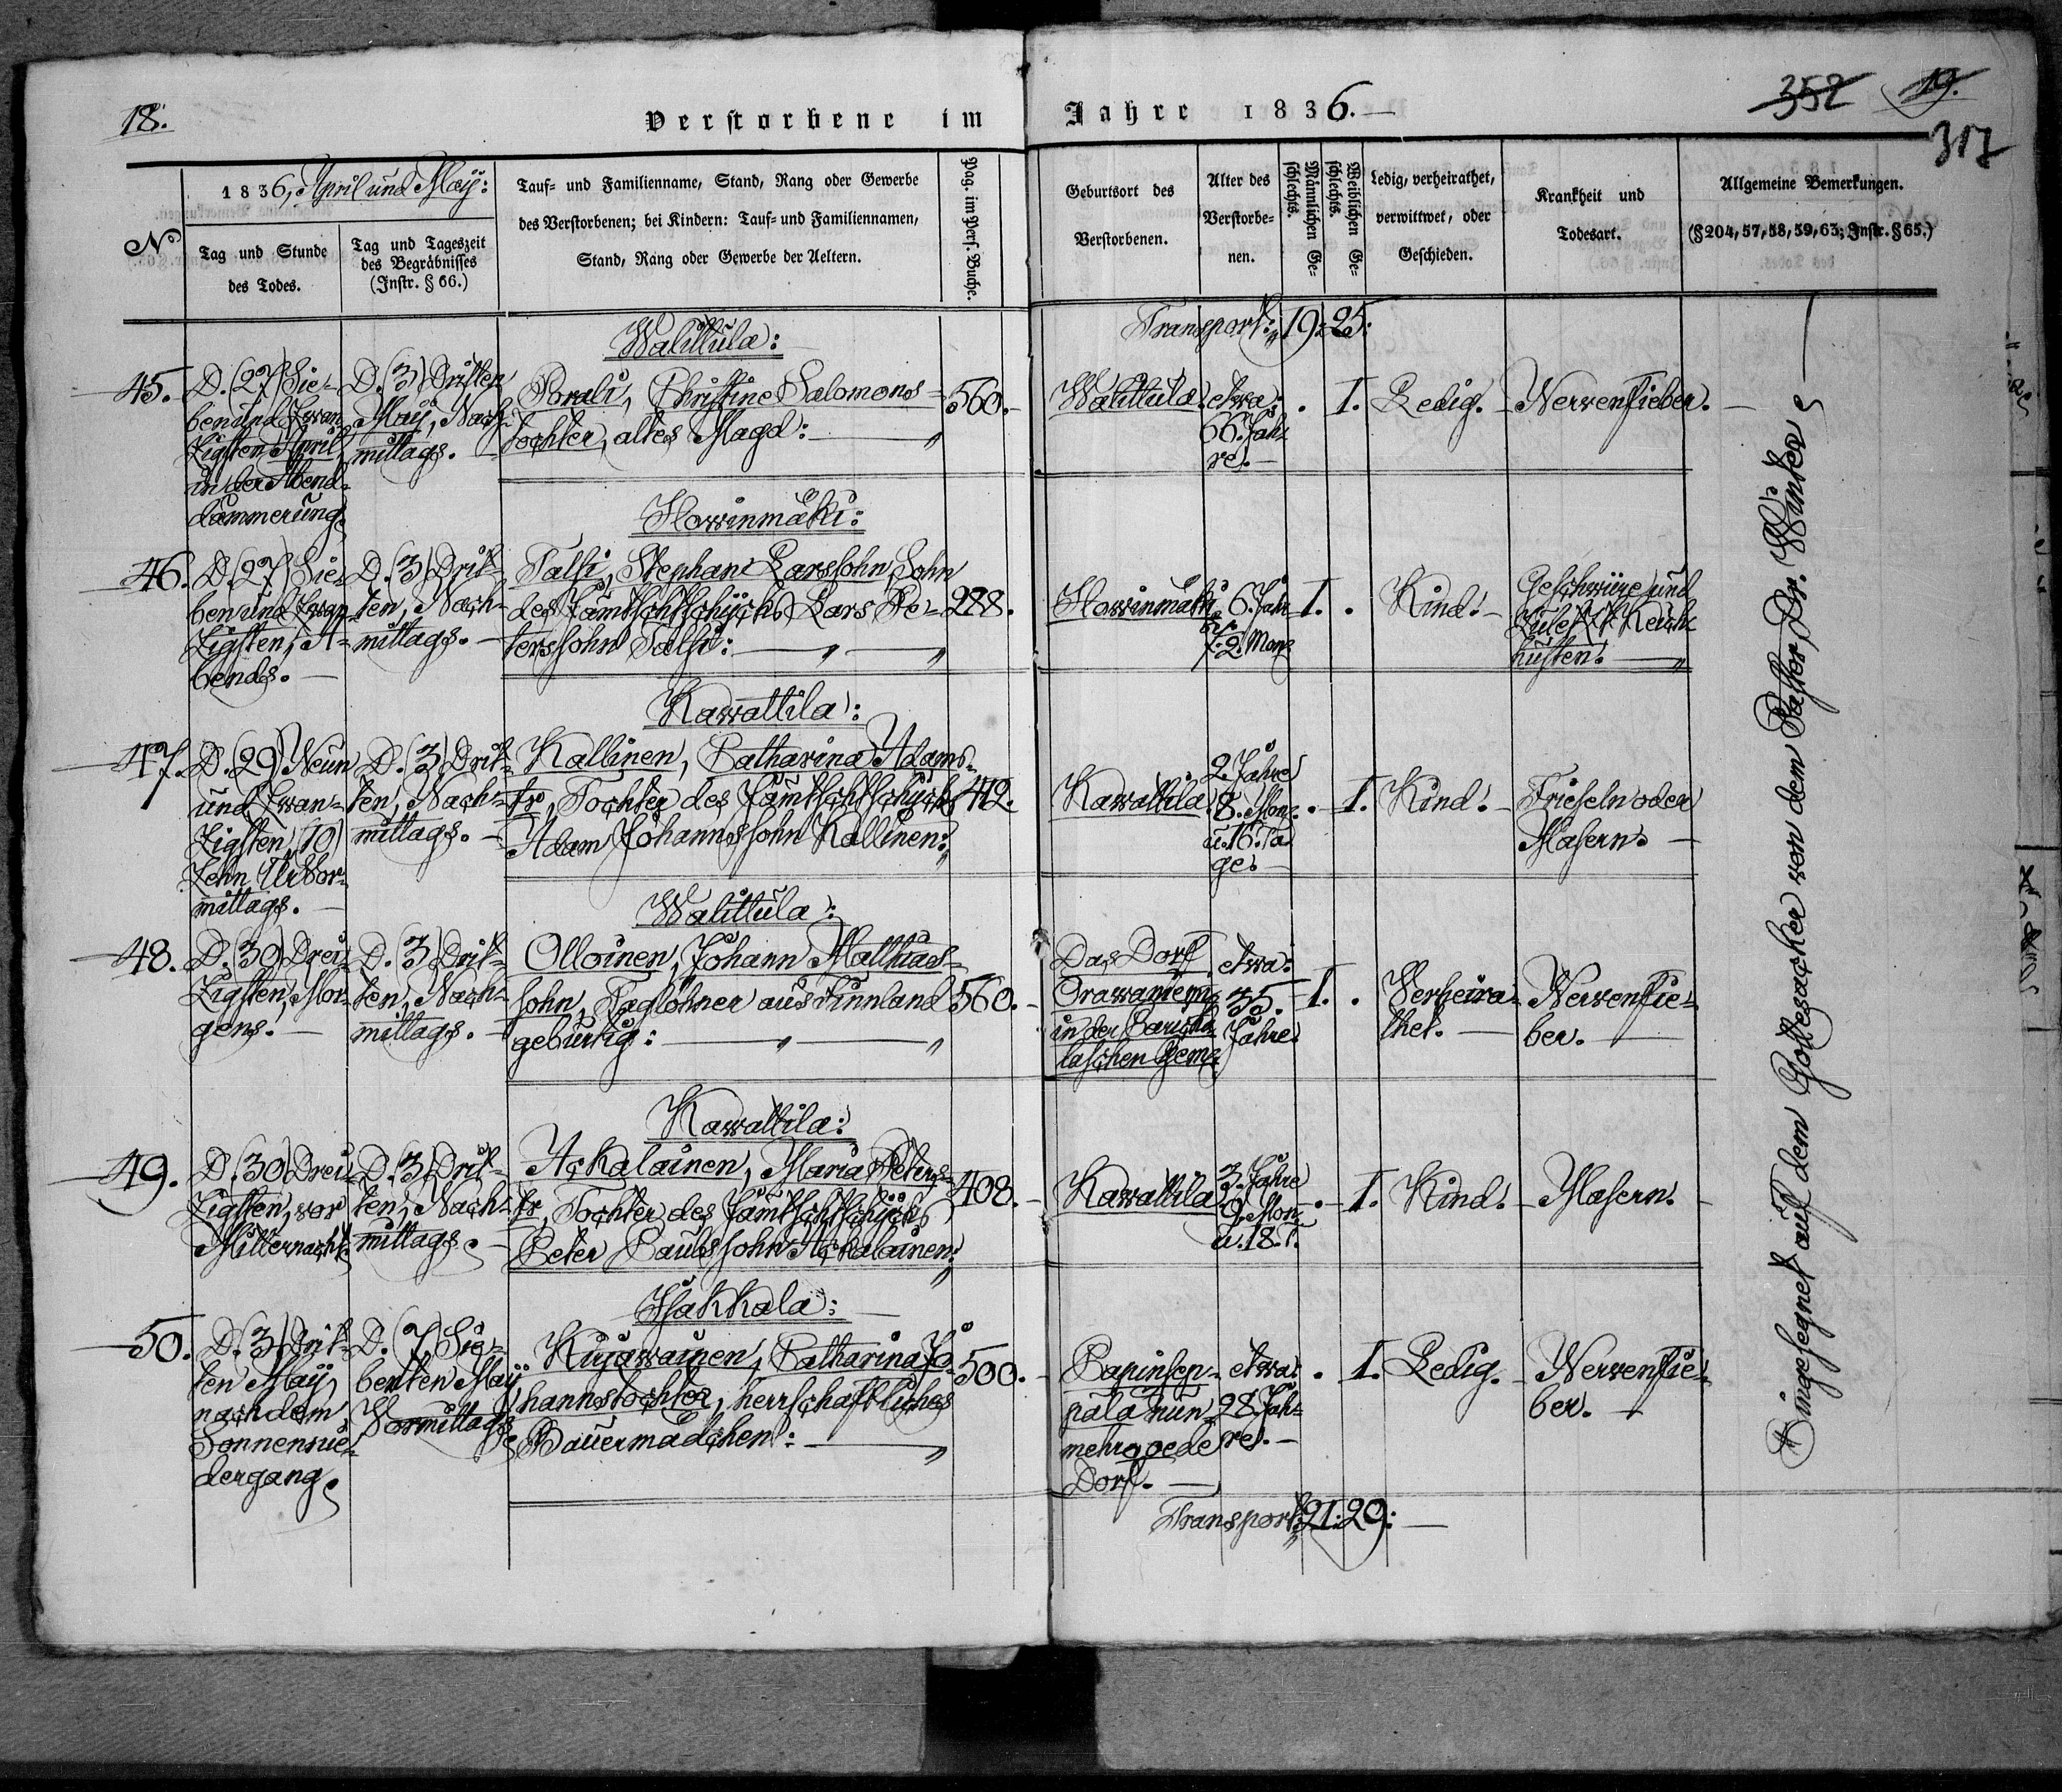 18.
Verstorbene im Jahre 1836.
352 19.
317
No
1836, April und Maÿ:
Tag und Stunde
des Todes.
Tag und Tageszeit
des Begräbnisses
(Instr. § 66.)
Tauf- und Familienname, Stand, Rang oder Gewerbe
des Verstorbenen; bei Kindern: Tauf- und Familiennamen,
Stand, Rang oder Gewerbe der Aeltern.
Pag. im Pers. Buche.
Geburtsort des
Verstorbenen.
Alter des
Verstorbe-
nen.
Männlichen Ge-
schlechts.
Weiblichen Ge-
schlechts.
Ledig, verheirathet,
verwittwet, oder
Geschieden.
Krankheit und
Todesart.
Allgemeine Bemerkungen.
(§ 204, 57, 58, 59, 63; Instr. § 65.)
Transport: 19: 25:
Walittula:
45.
D. (27) Sie-
ben und Zwan-
zigsten April,
in der Abend-
dämmerung.
D. (3) Dritten
Maÿ, Nach-
mittags.
Porali, Christine Salomons-
tochter, altes Magd:
560.
Walittula.
etwa:
66. Jah-
re.
. 1.
Ledig.
Nervenfieber.
Howinmäki:
46.
D. (27) Sie-
ben und Zwan-
zigsten, A-
bends.
D. (3) Drit-
ten, Nach-
mittags.
Talsi, Stephan Larssohn, Sohn
des Jämtschtschicks Lars Pe-
terssohn Talsi:
228.
Howinmäki
6. Jahr
2. Mon.
1. .
Kind.
Geschwüre und
zuletzt Keich-
husten.
Kawattila:
47.
D. (29) Neun
und Zwan-
zigsten, (10)
Zehn Uhr Vor-
mittags.
D. (3) Drit-
ten, Nach-
mittags.
Kallinen, Catharina Adams-
tr, Tochter des Jämtschtschicks
Adam Johannssohn Kallinen:
412.
Kawattila
2. Jahre
8. Mon.
u. 16. Ta-
ge.
. 1.
Kind.
Frieseln oder
Masern.
Walittula:
48.
D. (30) Drei-
zigsten, Mor-
gens.
D. (3) Drit-
ten, Nach-
mittags.
Olloinen, Johann Matthias-
sohn, Taglöhner aus Finnland
gebürtig:
560.
Das Dorf
Orawaniemi
in der
laschen Gem.
etwa:
35.
Jahre.
1. .
Verheira-
thet.
Nervenfie-
ber.
Kawattila:
49.
D. (30) Drei-
zigsten, vor
Mitternacht.
D. (3) Drit-
ten, Nach-
mittags.
Ackalainen, Maria Peters-
tr, Tochter des Jämtschtschicks
Peter Paulssohn Ackalainen:
408.
Kawattila
3. Jahre
9. Mon.
u. 18. T.
. 1.
Kind.
Masern.
Hakkala:
50.
D. (3) Drit-
ten Maÿ,
nach dem
Sonnennie-
dergang.
D. (7) Sie-
benten Maÿ
Vormittags.
Kujawainen, Catharina Jo-
hannstochter, herrschaftliches
Bauermädchen:
500.
Papinsep-
pälä nun-
mehr oede
Dorf.
etwa:
28. Jah-
re.
. 1.
Ledig.
Nervenfie-
ber.
Transport: 21: 29:
Eingesegnet auf dem Gottesacker von dem Pastor, Dr. Winter